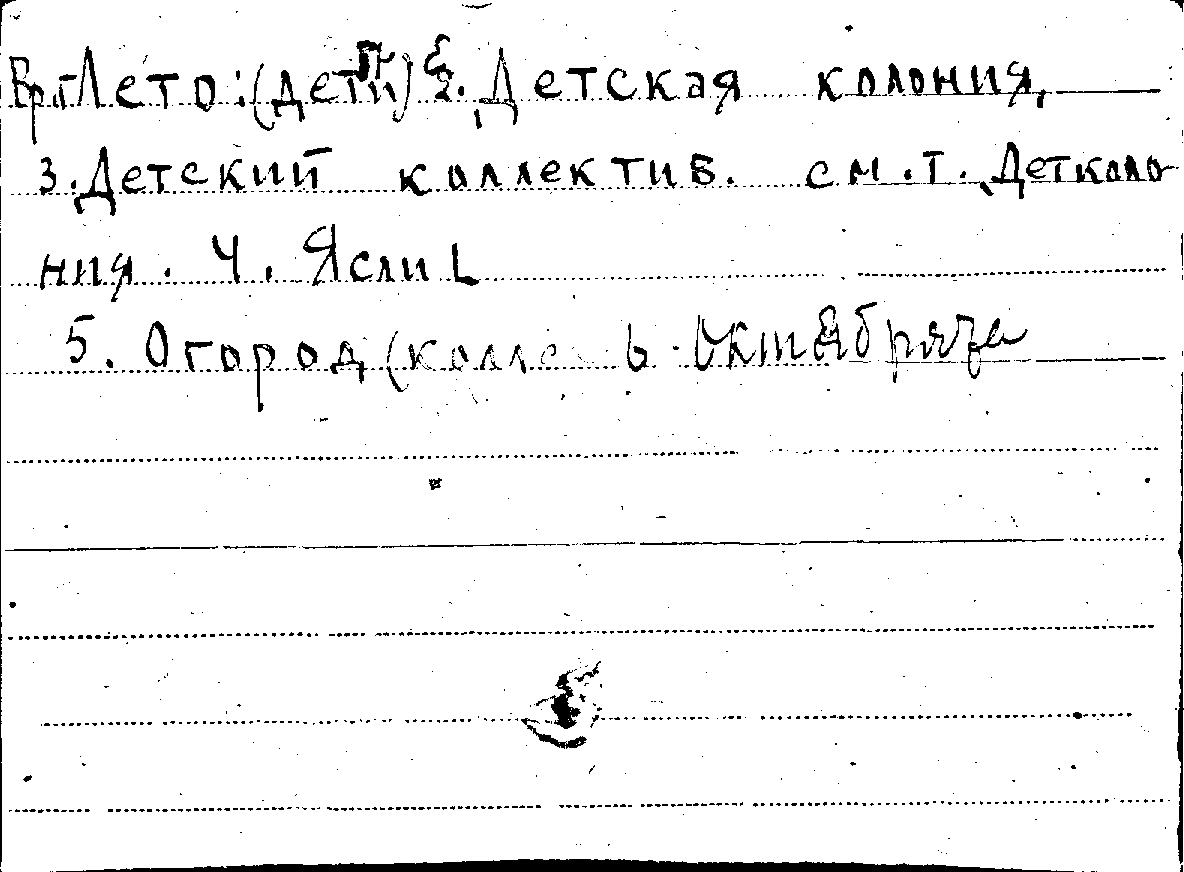 Лето: (дети) 2. Детская колония,
3. Детский коллектив. см. т. Деткало-
ния. 4. Ясли
5. Огород (колле 6. Октябрята